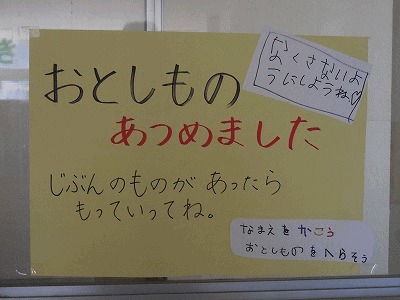 おとしもの
なくさないよ
うにしようね♡
あつめました
じぶんのものが あったら
もっていってね。
なまえを かこう
おとしものをへらそう